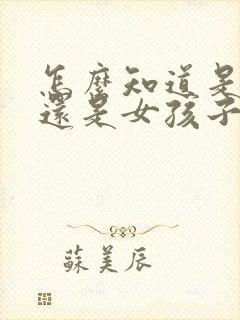 怎麼知道是
還是女孩子
蘇美辰